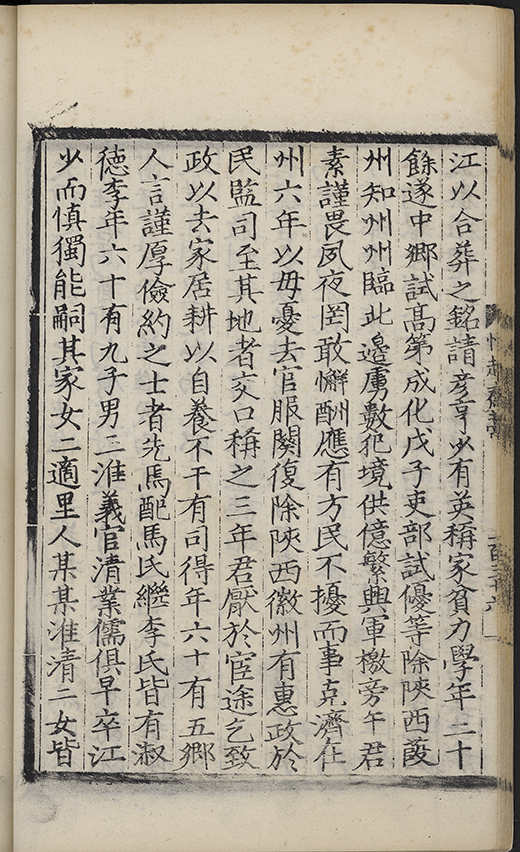 江以合葬之銘請彥亨少有英稱家貧力學年二十
餘遂中鄉試髙第成化戊子吏部試優等除陜西葭
州知州州臨北邊虜數犯境供億繁興軍檄旁午君
素謹畏夙夜罔敢懈酬應有方民不擾而事克濟在
州六年以母憂去官服闋復除陜西徽州有惠政於
民監司至其地者交口稱之三年君厭於宦途乞致
政以去家居耕以自養不干有司得年六十有五鄉
人言謹厚儉約之士者先馬配馬氏繼李氏皆有淑
德李年六十有九子男三淮義官清業儒俱早卒江
少而慎獨能嗣其家女二適里人某某淮清二女皆